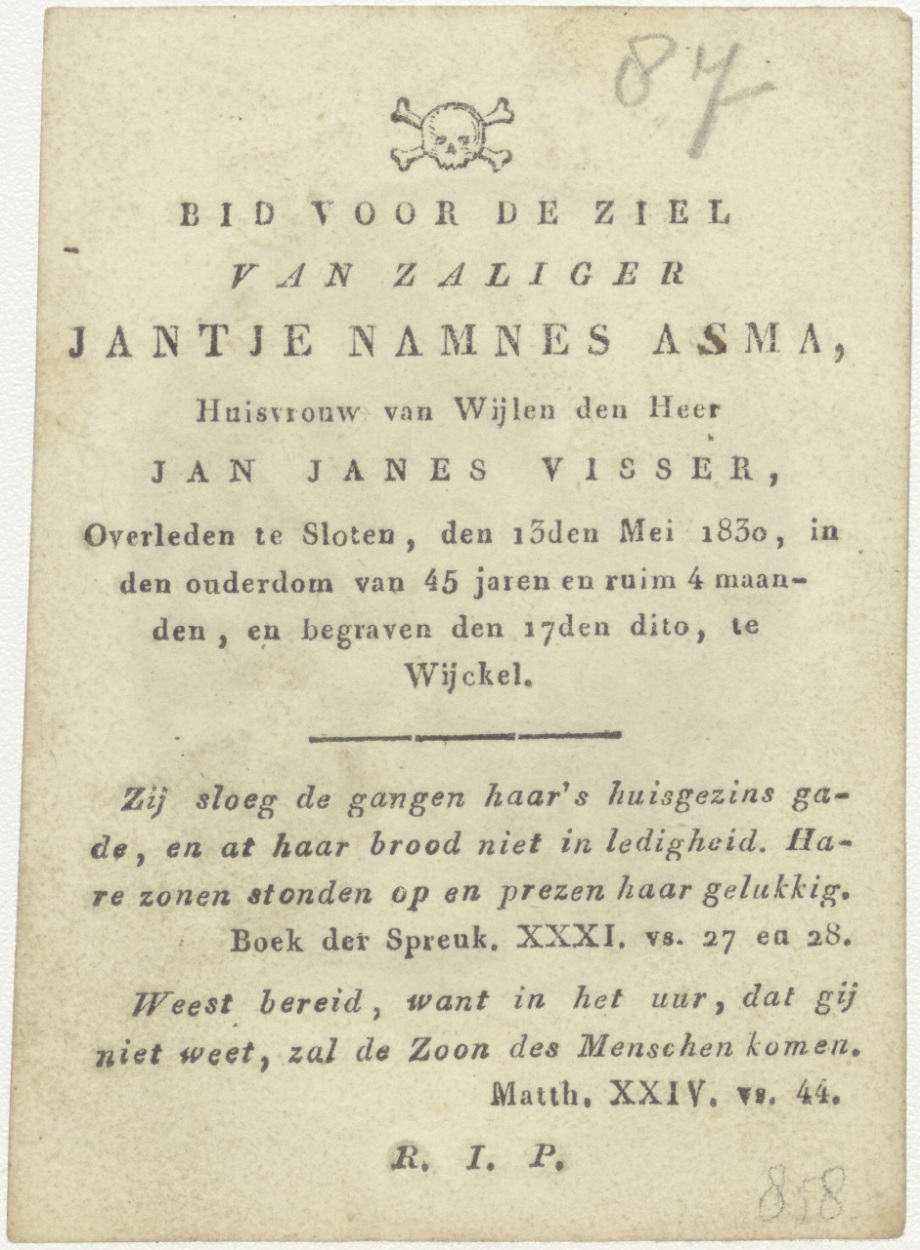 87
BID VOOR DE ZIEL
VAN ZALIGER
JANTJE NAMNES ASMA,
Huisvrouw van Wijlen den Heer
JAN JANES VISSER,
Overleden te Sloten, den 13den Mei 1830, in
den ouderdom van 45 jaren en ruim 4 maan-
den, en begraven den 17den dito, te
Wijckel.
Zij sloeg de gangen haar's huisgezins ga-
de, en at haar brood niet in ledigheid. Ha-
re zonen stonden op en prezen haar gelukkig.
Boek der Spreuk. XXXI. vs. 27 en 28.
Weest bereid, want in het uur, dat gij
niet weet, zal de Zoon des Menschen komen.
Matth. XXIV. vs. 44.
R. I. P.
858